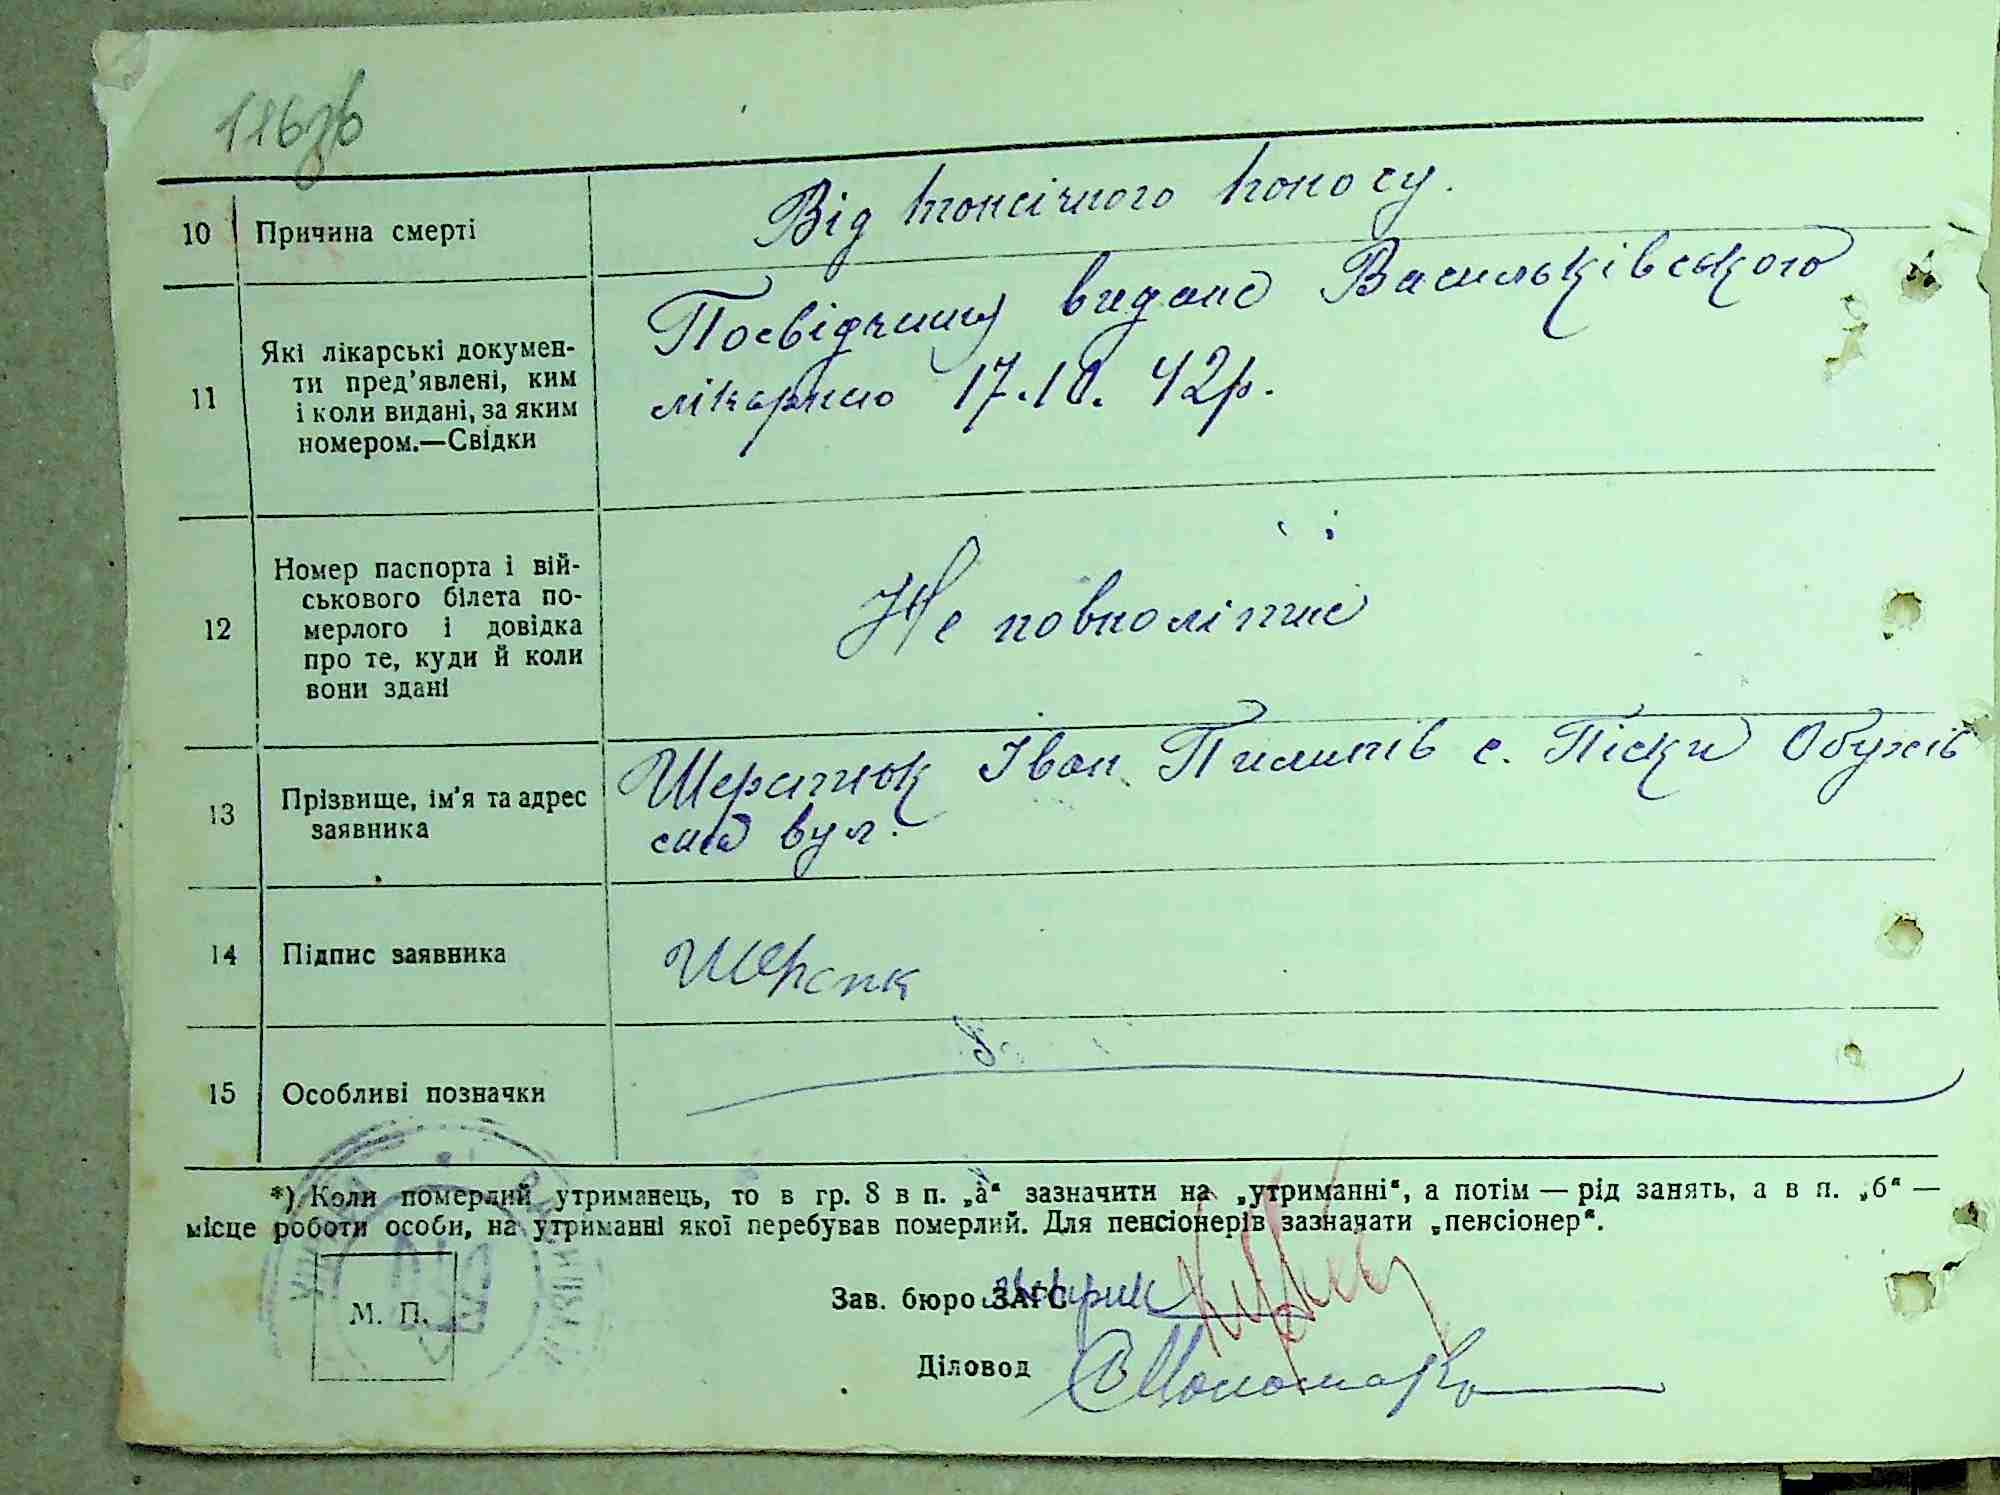 186зв
10 Причина смерті Від токсічного поносу.
11 Які лікарські докумен-
ти пред'явлені, ким
і коли видані, за яким
номером.—Свідки
Посвідчення видане Васильківського
лікарнею 17.10.42р.
12 Номер паспорта і вій-
ськового білета по-
мерлого і довідка
про те, куди й коли
вони здані
Не повнолітне
13 Прізвище, ім'я та адрес
заявника
Іван Пилипів с. Піски Обухів
ська вул.
14 Підпис заявника
15 Особливі позначки
*) Коли померлий утриманець, то в гр. 8 в п. „а“ зазначити на „утриманні“, а потім — рід занять, а в п. „б“ —
місце роботи особи, на утриманні якої перебував померлий. Для пенсіонерів зазначати „пенсіонер“.
М. П.
Зав. бюро ЗАГС
Діловод